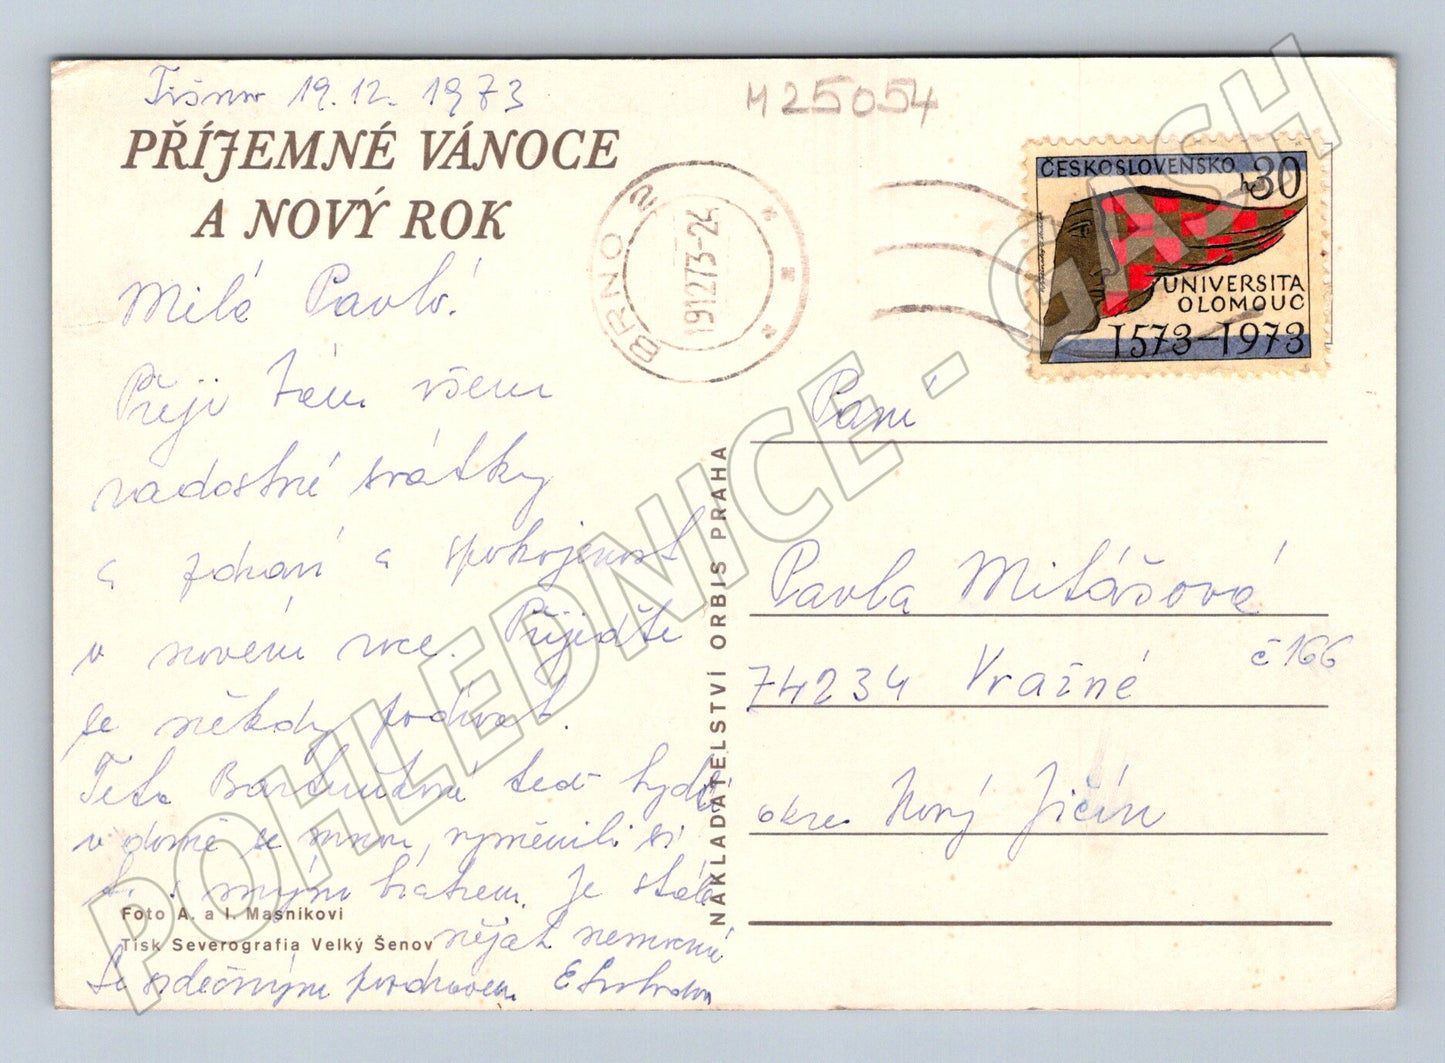 Tišnov 19.12. 1973
M25054
PŘÍJEMNÉ VÁNOCE
A NOVÝ ROK
Milá Pavlo!
Přeji Vám všem
radostné svátky
a zdraví a spokojenost
v novém roce. Přijeďte
se někdy podívat.
Teta teď bydlí
v domě se mnou, vyměnili si
i s mým bratrem. Je stále
nějak nemocná
Se srdečným pozdravem E
Foto A. a I. Masníkovi
Tisk Severografia Velký Šenov
NAKLADATELSTVÍ ORBIS PRAHA
BRNO 2
19.12.73-24
ČESKOSLOVENSKO
h 30
UNIVERSITA
OLOMOUC
1573-1973
Paní
Pavla Mitášová
č 166
74234 Vražné
okres Nový Jičín
POHLEDNICE - GASH